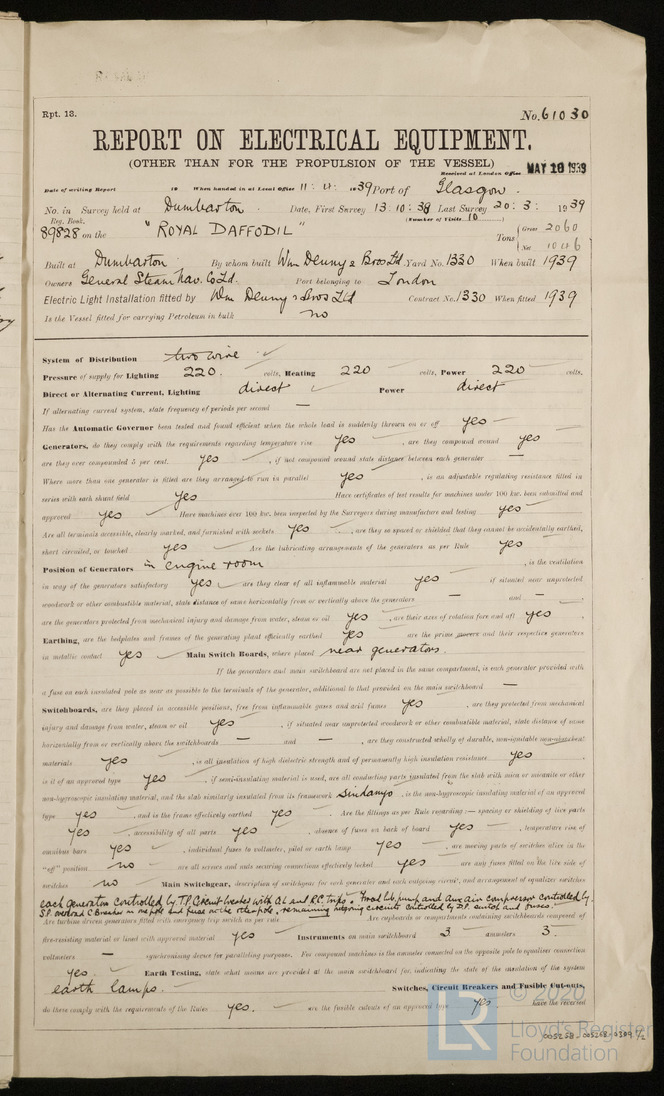 Rpt. 13.
No. 61030
REPORT ON ELECTRICAL EQUIPMENT.
(OTHER THAN FOR THE PROPULSION OF THE VESSEL)
Received at London Office MAY 10 1939
Date of writing Report 19 When handed in at Local Office 11 : 4 : 1939 Port of Glasgow.
No. in Survey held at Dumbarton Date, First Survey 13 : 10 : 38 Last Survey 20 : 3 : 1939
Reg. Book. (Number of Visits 10)
89828 on the "ROYAL DAFFODIL" Tons { Gross 2060
Net 1046
Built at Dumbarton By whom built Wm Denny & Bros Ltd. Yard No. 1330 When built 1939
Owners General Steam Nav. Co Ld. Port belonging to London
Electric Light Installation fitted by Wm Denny & Bros Ltd Contract No. 1330 When fitted 1939
Is the Vessel fitted for carrying Petroleum in bulk no
System of Distribution two wire
Pressure of supply for Lighting 220 volts, Heating 220 volts, Power 220 volts.
Direct or Alternating Current, Lighting direct Power direct
If alternating current system, state frequency of periods per second —
Has the Automatic Governor been tested and found efficient when the whole load is suddenly thrown on or off yes
Generators, do they comply with the requirements regarding temperature rise yes, are they compound wound yes
are they over compounded 5 per cent. yes, if not compound wound state distance between each generator —
Where more than one generator is fitted are they arranged to run in parallel yes, is an adjustable regulating resistance fitted in
series with each shunt field yes Have certificates of test results for machines under 100 kw. been submitted and
approved yes Have machines over 100 kw. been inspected by the Surveyors during manufacture and testing yes
Are all terminals accessible, clearly marked, and furnished with sockets yes, are they so spaced or shielded that they cannot be accidentally earthed,
short circuited, or touched yes Are the lubricating arrangements of the generators as per Rule yes
Position of Generators in engine room, is the ventilation
in way of the generators satisfactory yes are they clear of all inflammable material yes if situated near unprotected
woodwork or other combustible material, state distance of same horizontally from or vertically above the generators — and —,
are the generators protected from mechanical injury and damage from water, steam or oil yes, are their axes of rotation fore and aft yes
Earthing, are the bedplates and frames of the generating plant efficiently earthed yes are the prime movers and their respective generators
in metallic contact yes Main Switch Boards, where placed near generators
If the generators and main switchboard are not placed in the same compartment, is each generator provided with
a fuse on each insulated pole as near as possible to the terminals of the generator, additional to that provided on the main switchboard —
Switchboards, are they placed in accessible positions, free from inflammable gases and acid fumes yes, are they protected from mechanical
injury and damage from water, steam or oil yes, if situated near unprotected woodwork or other combustible material, state distance of same
horizontally from or vertically above the switchboards — and —, are they constructed wholly of durable, non-ignitable non-absorbent
materials yes, is all insulation of high dielectric strength and of permanently high insulation resistance yes,
is it of an approved type yes, if semi-insulating material is used, are all conducting parts insulated from the slab with mica or micanite or other
non-hygroscopic insulating material, and the slab similarly insulated from its framework Sindanyo, is the non-hygroscopic insulating material of an approved
type yes, and is the frame effectively earthed yes Are the fittings as per Rule regarding :— spacing or shielding of live parts
yes, accessibility of all parts yes, absence of fuses on back of board yes, temperature rise of
omnibus bars yes, individual fuses to voltmeter, pilot or earth lamp yes, are moving parts of switches alive in the
"off" position no are all screws and nuts securing connections effectively locked yes are any fuses fitted on the live side of
switches no Main Switchgear, description of switchgear for each generator and each outgoing circuit, and arrangement of equalizer switches
each generator controlled by T.P. Circuit breaker with O.L and R.C. trips. Frced lub. pump and Aux air compressor controlled by
S.P. overload C. Breaker on one pole and fuse on the other pole. remaining outgoing circuits controlled by D.P. switch and fuses.
Are turbine driven generators fitted with emergency trip switch as per rule Are cupboards or compartments containing switchboards composed of
fire-resisting material or lined with approved material yes Instruments on main switchboard 3 ammeters 3
voltmeters — synchronising device for paralleling purposes. For compound machines is the ammeter connected on the opposite pole to equaliser connection
yes. Earth Testing, state what means are provided at the main switchboard for indicating the state of the insulation of the system
earth lamps. Switches, Circuit Breakers and Fusible Cut-outs,
do these comply with the requirements of the Rules yes. are the fusible cutouts of an approved type yes have the reversed
© 2020
LR
Lloyd's Register
Foundation
005258-005268-0309 1/2